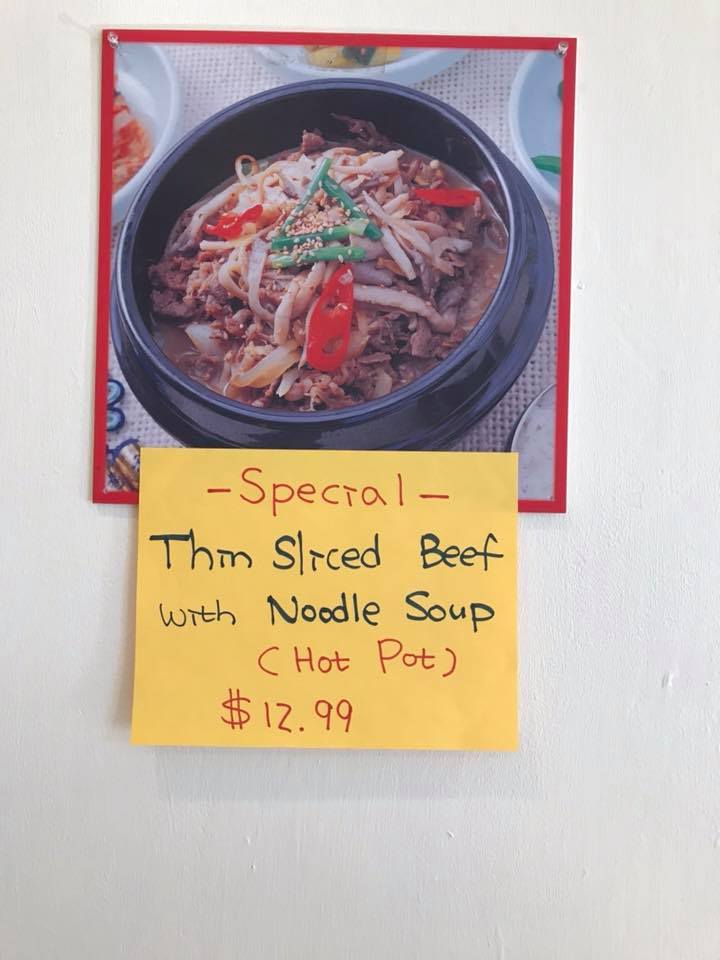 - Special -
Thin Sliced Beef
with Noodle Soup
(Hot Pot)
$12.99